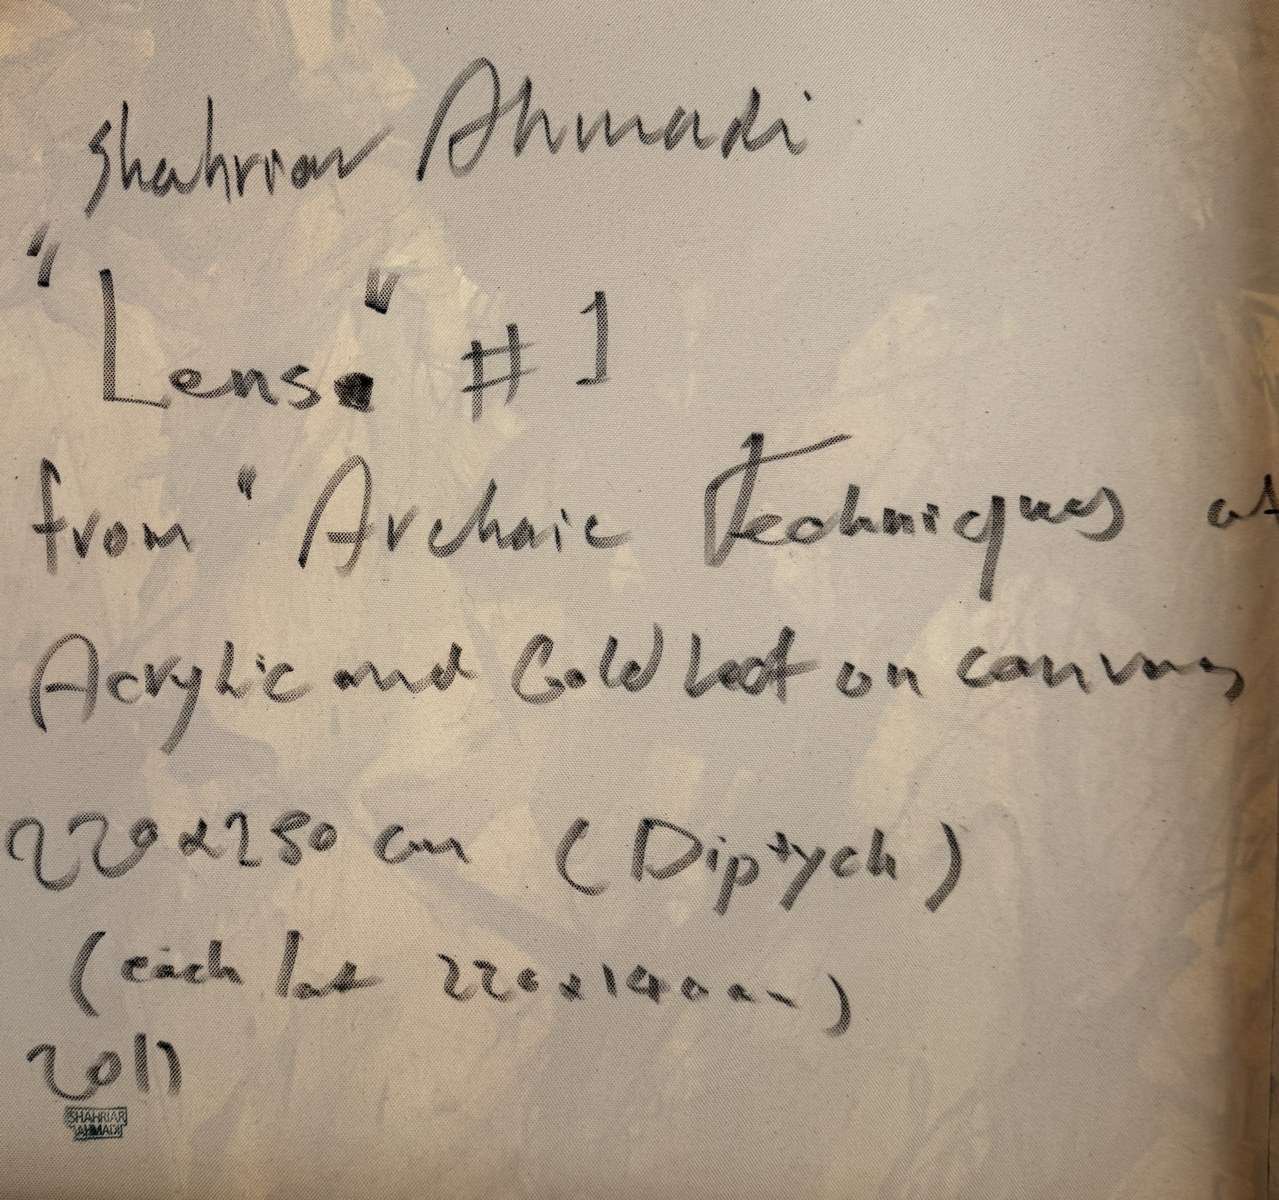 Shahriar Ahmadi
"Lens" #1
from "Archaic Techniques of
Acrylic and Gold Leaf on canvas
220x280 cm (Diptych)
(each lat 220x140cm)
2011
SHAHRIAR
AHMADI